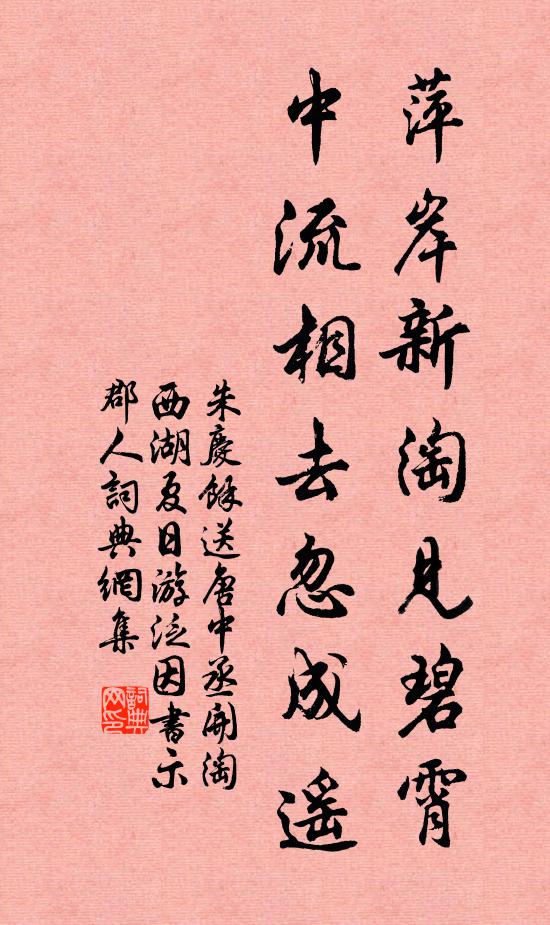 萍岸新淘見碧霄
中流相去忽成遥
朱慶餘送唐中丞開淘
西湖夏日游泛因書示
郡人詞典網集
詞典网印